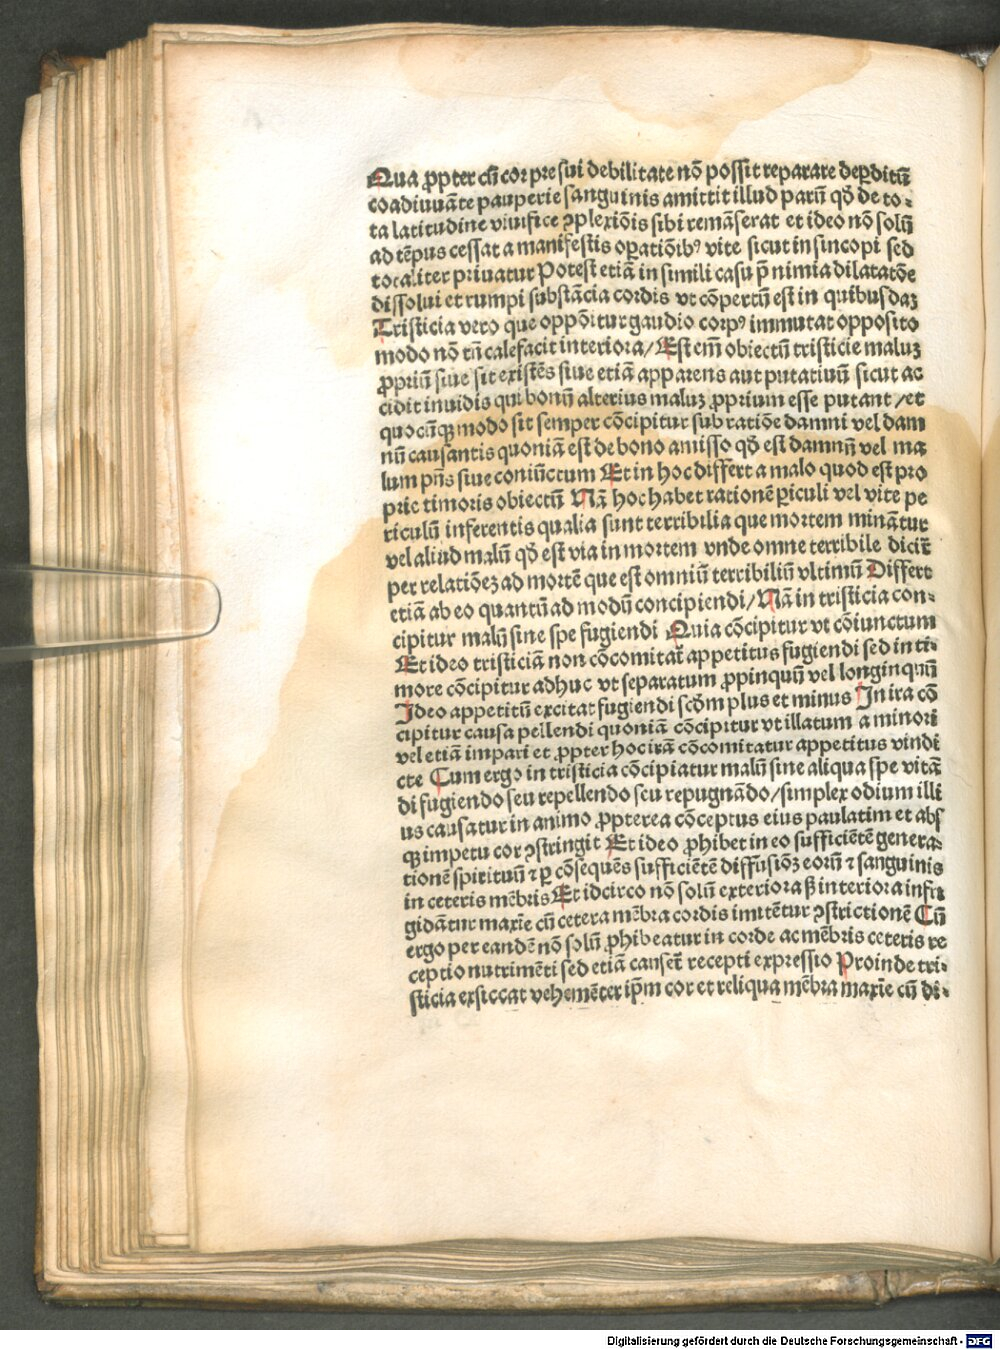 Qua ꝓpter cū cor pre sui debilitate nō possit reparare deꝑditū
coadiuuāte pauperie sanguinis amittit illud parū qd̄ de to-
ta latitudine viuifice ꝯplexiōis sibi remāserat et ideo nō solū
ad tēpus cessat a manifestis oꝑatiōibꝰ vite sicut in sincopi sed
totaliter priuatur Potest etiā in simili casu p̄ nimia dilatatōe
dissolui et rumpi substācia cordis vt cōpertū est in quibusdaꝫ
Tristicia vero que oppōitur gaudio corpꝰ immutat opposito
modo nō tn̄ calefacit interiora/ Est em̄ obiectū tristicie maluꝫ
ꝓpriū siue sit existēs siue etiā apparens aut putatiuū sicut ac
cidit inuidis qui bonū alterius maluꝫ ꝓprium esse putant /et
quocūqꝫ modo sit semper cōcipitur sub ratiōe damni vel dam
nū causantis quoniā est de bono amisso qd̄ est damnū vel ma
lum pn̄s siue coniūctum Et in hoc differt a malo quod est pro
prie timoris obiectū Nā hoc habet rationē ꝑiculi vel vite pe
riculū inferentis qualia sunt terribilia que mortem minātur
vel aliud malū qd̄ est via in mortem vnde omne terribile dicit̄
per relatiōeꝫ ad mortē que est omniū terribiliū vltimū Differt
etiā ab eo quantū ad modū concipiendi/ Nā in tristicia con-
cipitur malū sine spe fugiendi Quia cōcipitur vt cōiunctum
Et ideo tristiciā non cōcomitat̄ appetitus fugiendi sed in ti-
more cōcipitur adhuc vt separatum ꝓpinquū vel longinquū
Ideo appetitū excitat fugiendi scd̄m plus et minus In ira cō
cipitur causa pellendi quoniā cōcipitur vt illatum a minori
vel etiā impari et ꝓpter hoc irā cōcomitatur appetitus vindi
cte Cum ergo in tristicia cōcipiatur malū sine aliqua spe vitā
di fugiendo seu repellendo seu repugnādo/simplex odium illi
us causatur in animo ꝓpterea cōceptus eius paulatim et abs
qꝫ impetu cor ꝯstringit Et ideo ꝓhibet in eo sufficiētē genera-
tionē spirituū ⁊ ꝑ cōsequēs sufficiētē diffusiōꝫ eorū ⁊ sanguinis
in ceteris mēbris Et idcirco nō solū exteriora ß interiora infri
gidātur maxīe cū cetera mēbra cordis imitētur ꝯstrictionē Cū
ergo per eandē nō solū ꝓhibeatur in corde ac mēbris ceteris re
ceptio nutrimēti sed etiā causet̄ recepti expressio Proinde tri-
sticia exsiccat vehemēter ip̄m cor et reliqua mēbra maxīe cū di-
Digitalisierung gefördert durch die Deutsche Forschungsgemeinschaft - DFG